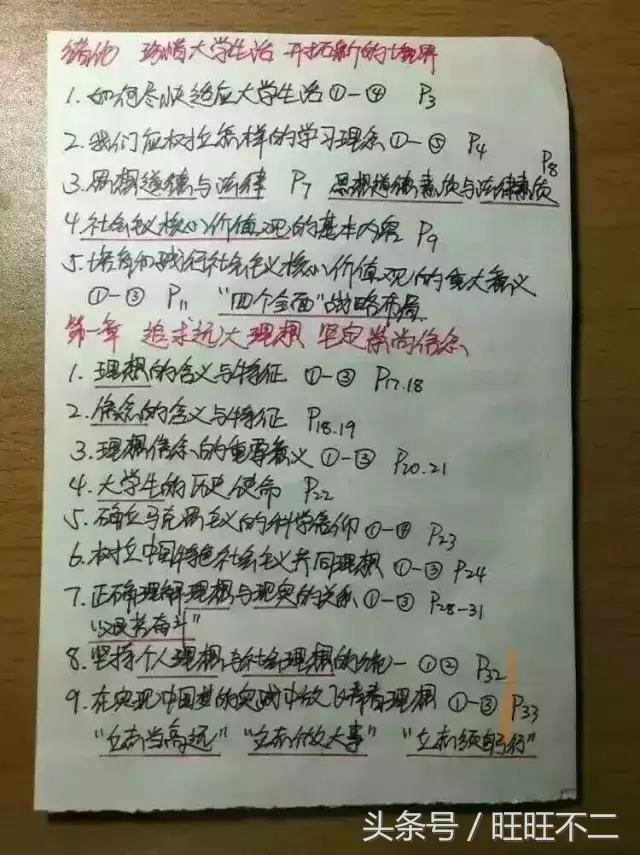 绪论 珍惜大学生活 开拓新的境界
1. 如何尽快适应大学生活①-④ P3
2. 我们应树立怎样的学习理念①-⑤ P4
3. 思想道德与法律 P7 思想道德素质与法律素质 P8
4. 社会主义核心价值观的基本内容 P9
5. 培育和践行社会主义核心价值观的重大意义
①-③ P11 “四个全面”战略布局
第一章 追求远大理想 坚定崇尚信念
1. 理想的含义与特征 ①-③ P17.18
2. 信念的含义与特征 P18.19
3. 理想信念的重要意义①-③ P20.21
4. 大学生的历史使命 P22
5. 确立马克思主义的科学信仰①-④ P23
6. 树立中国特色社会主义共同理想 ①-③ P24
7. 正确理解理想与现实的关系①-③ P28-31
“艰苦奋斗”
8. 坚持个人理想与社会理想的统一 ①② P32
9. 在实现中国梦的实践中放飞青春理想 ①-③ P33
“立志当高远” “立志做大事” “立志须躬行”
头条号 / 旺旺不二